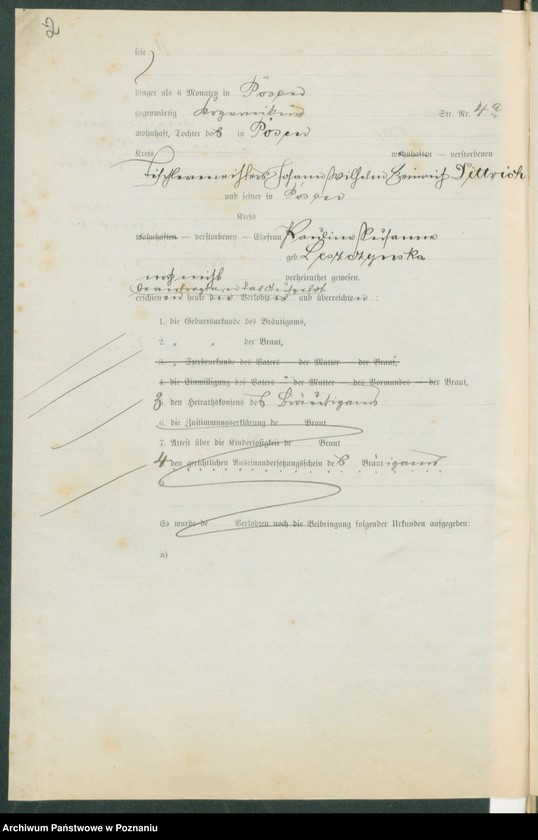 2
seit
länger als 6 Monaten in Posen
gegenwärtig Str. Nr. 4 a
wohnhaft, Tochter des in Posen
Kreis wohnhaften — verstorbenen
Tischlermeisters Johann Wilhelm Heinrich Dittrich
und seiner in Posen
Kreis
wohnhaften — verstorbenen — Ehefrau Pauline Susanna
geb. Leszczynska
noch nicht verheirathet gewesen.
beantragten das Aufgebot
erschienen heute die Verlobten und überreichten :
1. die Geburtsurkunde des Bräutigams,
2. „ „ der Braut,
3. „ Sterbeurkunde des Vaters — der Mutter — der Braut,
4. die Einwilligung des Vaters — der Mutter — des Vormundes — der Braut,
3. den Heirathskonsens des Bräutigams
6. die Zustimmungserklärung de Braut
7. Attest über die Kinderlosigkeit de Braut
4 den gerichtlichen Auseinandersetzungsschein des Bräutigams
Es wurde de Verlobten noch die Beibringung folgender Urkunden aufgegeben:
a)
Archiwum Państwowe w Poznaniu